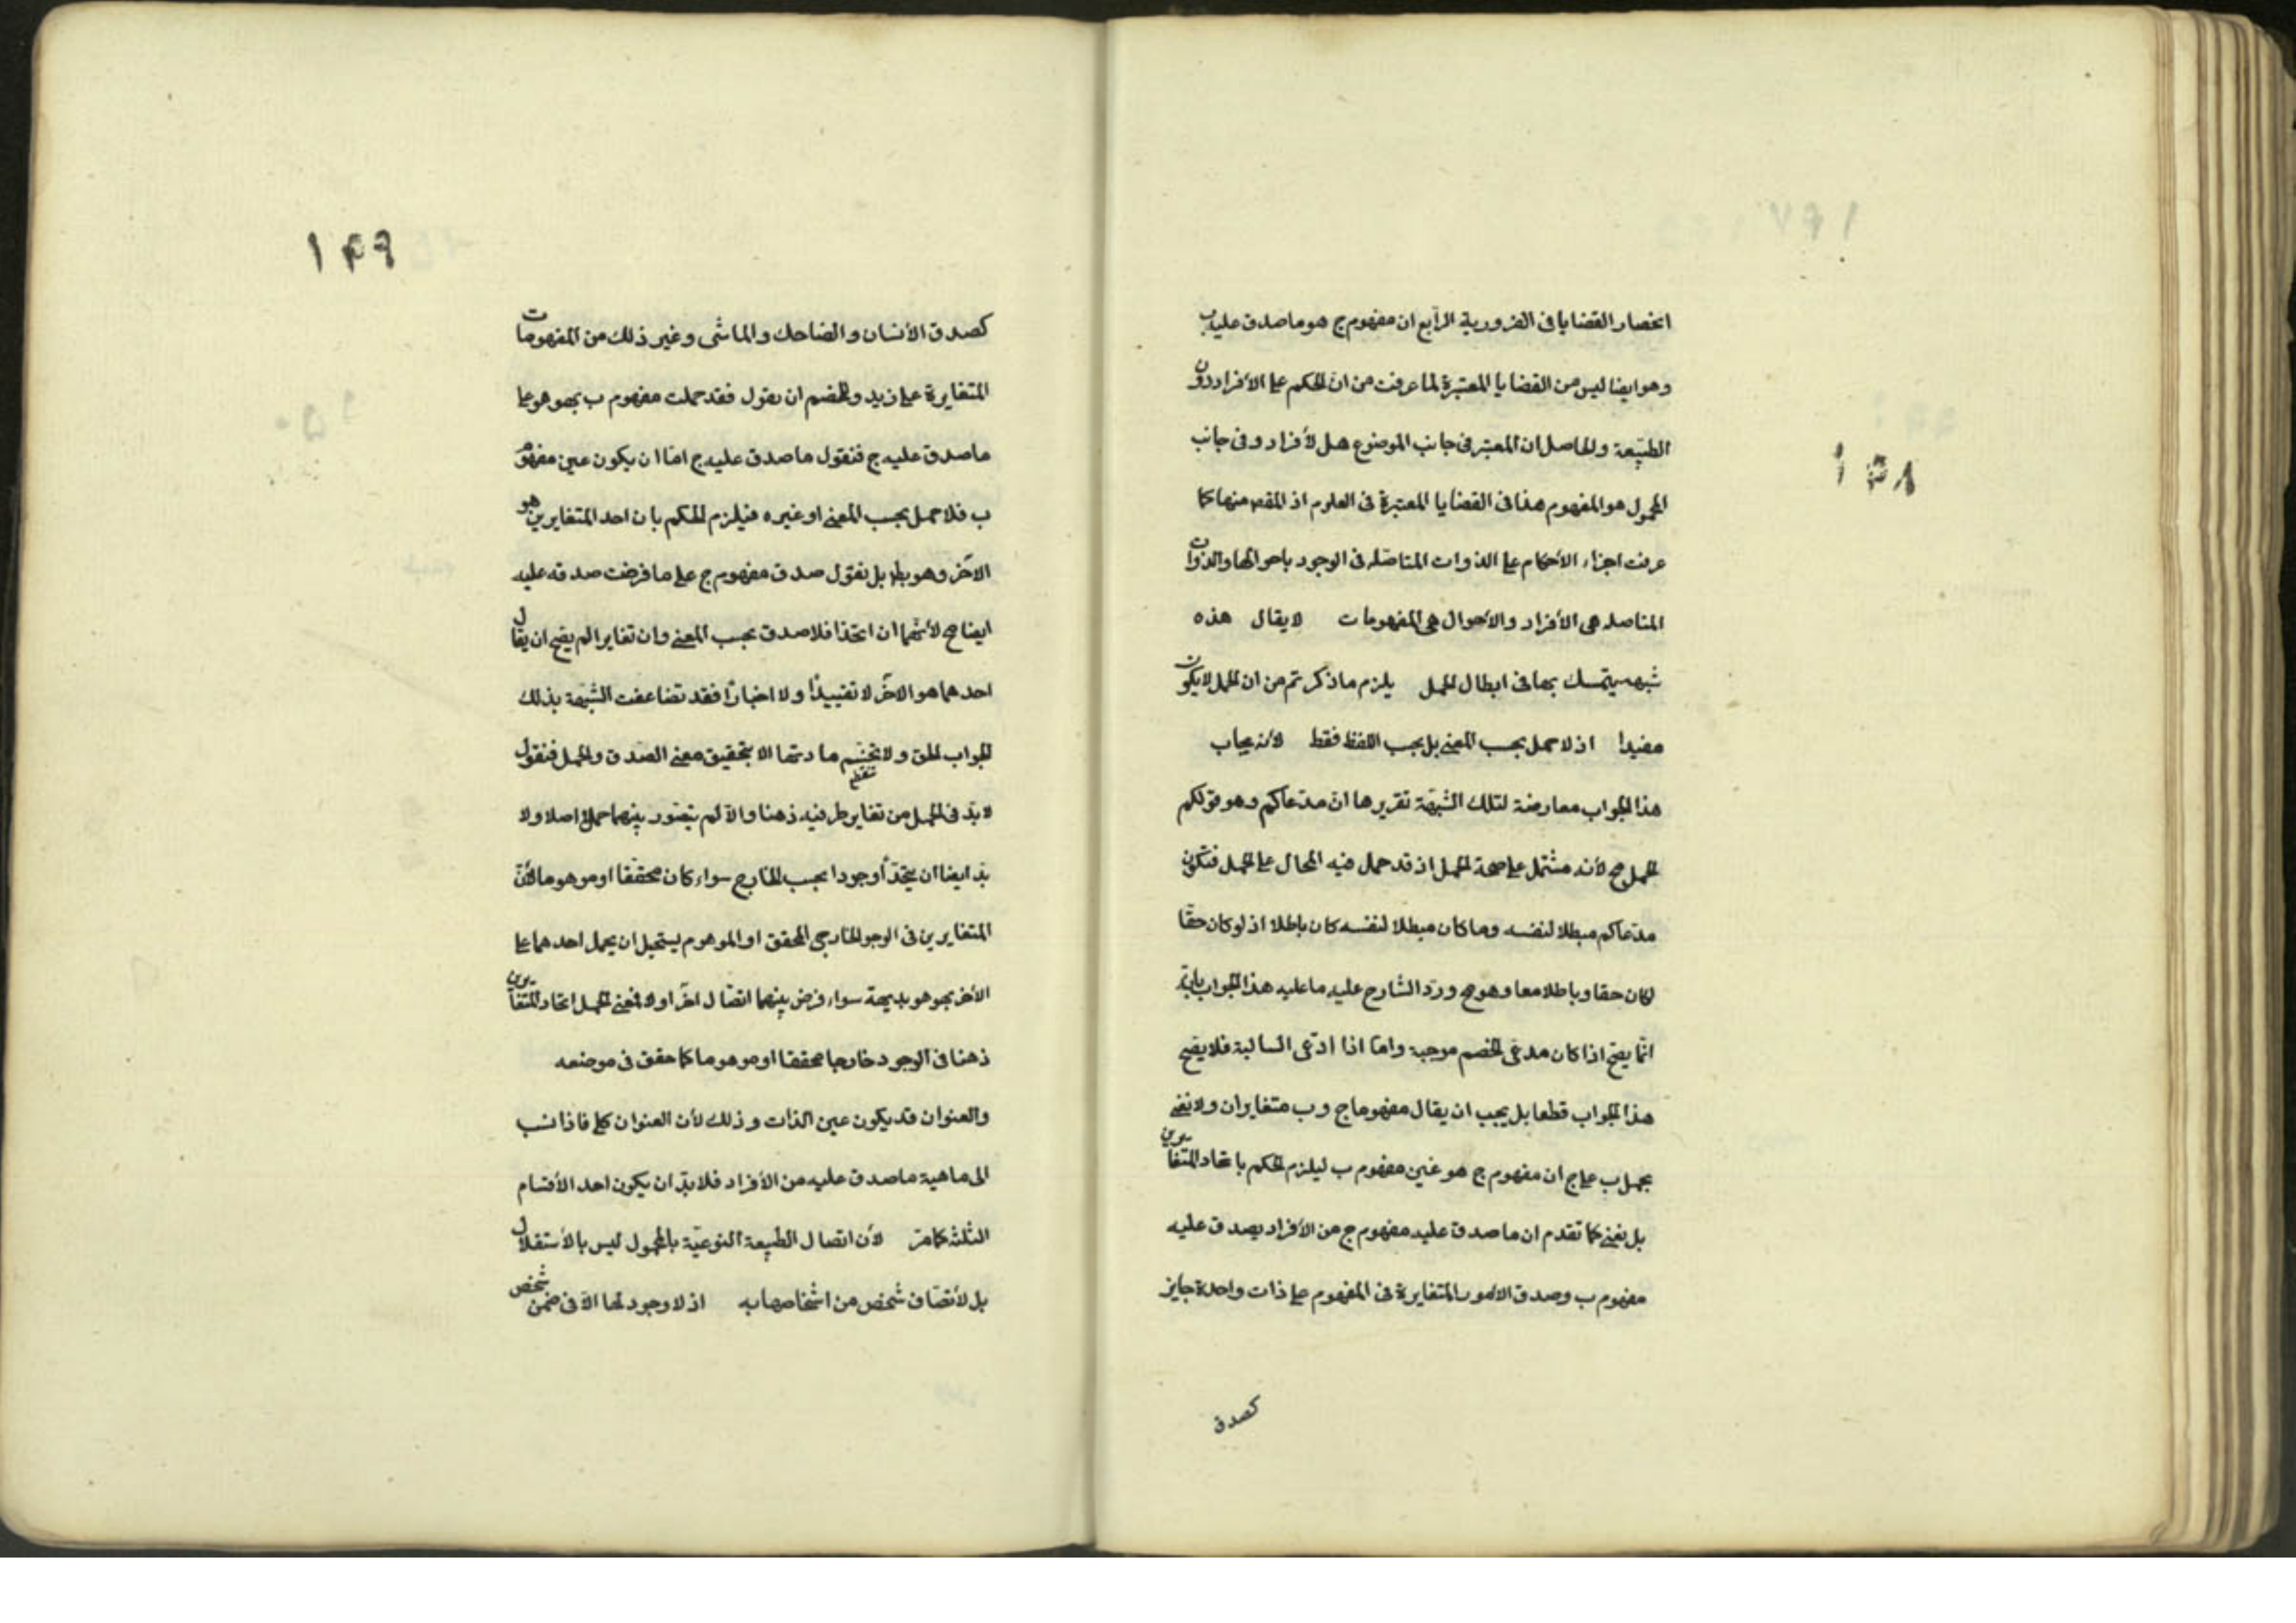 ١٤٨
انحصار القضايا فى الضرورية الرابع ان مفهوم ج هو ما صدق عليه ب
وهو ايضا ليس من القضايا المعتبرة لما عرفت من ان الحكم على الأفراد دون
الطبيعة والحاصل ان المعتبر فى جانب الموضوع هل لأفراد وفى جانب
المحمول هو المفهوم هذا فى القضايا المعتبرة فى العلوم اذ المقص منها كما
عرفت اجراء الأحكام على الذوات المتاصله فى الوجود باحوالها والذوات
المتاصله هى الأفراد والأحوال هى المفهومات لا يقال هذه
شبهه يتمسك بها فى ابطال الحمل يلزم ما ذكرتم من ان الحمل لا يكون
مفيدا اذ لا حمل بحسب المعنى بل بحسب اللفظ فقط لأنه يجاب
هذا الجواب معارضة لتلك الشبهة تقريرها ان مدعاكم وهو قولكم
الحمل مح لأنه مشتمل على صحة الحمل اذ قد حمل فيه المحال على الحمل فتكون
مدعاكم مبطلا لنفسه وما كان مبطلا لنفسه كان باطلا اذ لو كان حقا
لكان حقا وباطلا معا وهو مح ورد الشارح عليه ما عليه هذا الجواب بانه
انما يصح اذا كان مدعى الخصم موجبة واما اذا ادعى السالبة فلا يصح
هذا الجواب قطعا بل يجب ان يقال مفهوما ج و ب متغايران ولا نعنى
بحمل ب على ج ان مفهوم ج هو عين مفهوم ب ليلزم الحكم باتحاد المتغايرين
بل نعنى كما تقدم ان ما صدق عليه مفهوم ج من الأفراد يصدق عليه
مفهوم ب وصدق الأمور المتغايرة فى المفهوم على ذات واحدة جايز
كصدق
١٤٩
كصدق الأنسان والضاحك والماشى وغير ذلك من المفهومات
المتغايرة على زيد وللخصم ان يقول فقد حملت مفهوم ب بهو هو على
ما صدق عليه ج فنقول ما صدق عليه ج اما ان يكون عين مفهوم
ب فلا حمل بحسب المعنى او غيره فيلزم الحكم بان احد المتغايرين هو
الآخر وهو بط بل نقول صدق مفهوم ج على ما فرضت صدقه عليه
ايضا مح لأنهما ان اتحدا فلا صدق بحسب المعنى وان تغايرا لم يصح ان يقال
احدهما هو الآخر لا تقييدا ولا اخبارا فقد تضاعفت الشبهة بذلك
الجواب الحق ولا تنحسم مادتها الا بتحقيق معنى الصدق والحمل فنقول
لا بد فى الحمل من تغاير طرفيه ذهنا والا لم يتصور بينهما حمل اصلا ولا
بد ايضا ان يتحدا وجودا بحسب الخارج سواء كان محققا او موهوما لأن
المتغايرين فى الوجود الخارجى المحقق او الموهوم يستحيل ان يحمل احدهما على
الأخر بهو هو بديهة سواء فرض بينهما اتصال اخر او لا فمعنى الحمل اتحاد المتغايرين
ذهنا فى الوجود خارجا محققا او موهوما كما حقق فى موضعه
والعنوان قد يكون عين الذات وذلك لأن العنوان كلى فاذا نسب
الى ماهية ما صدق عليه من الأفراد فلا بد ان يكون احد الأقسام
الثلثة كما مر لأن اتصال الطبيعة النوعية بالمحمول ليس بالأستقلال
بل لأتصاف شخص من اشخاصها به اذ لا وجود لها الا فى ضمن شخص